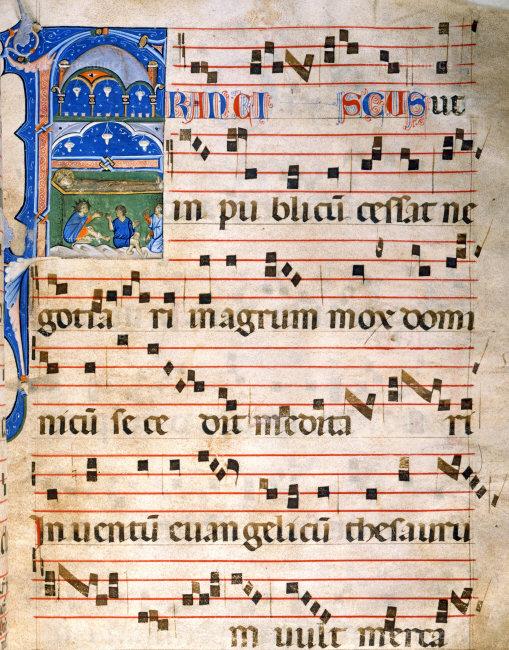 FRANCISCUS ut
in publicū cessat ne
gotiari in agrum mox domi
nicū secedit meditari
Inventū evangelicū thesauru
m vult merca